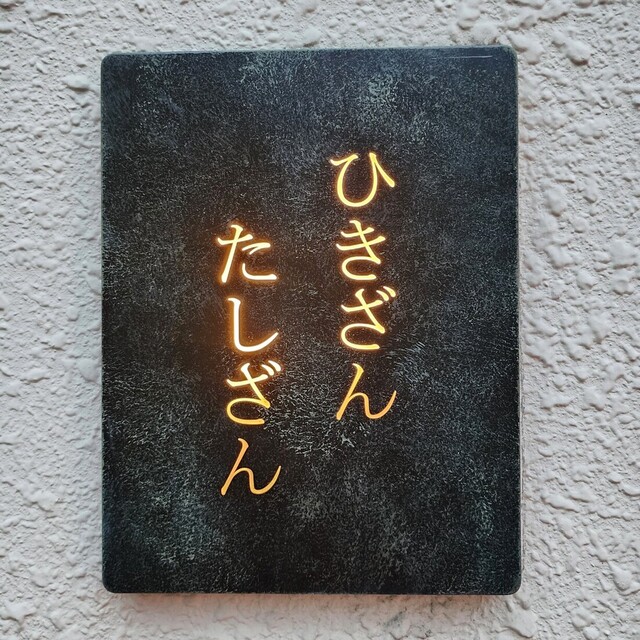 ひきざん
たしざん